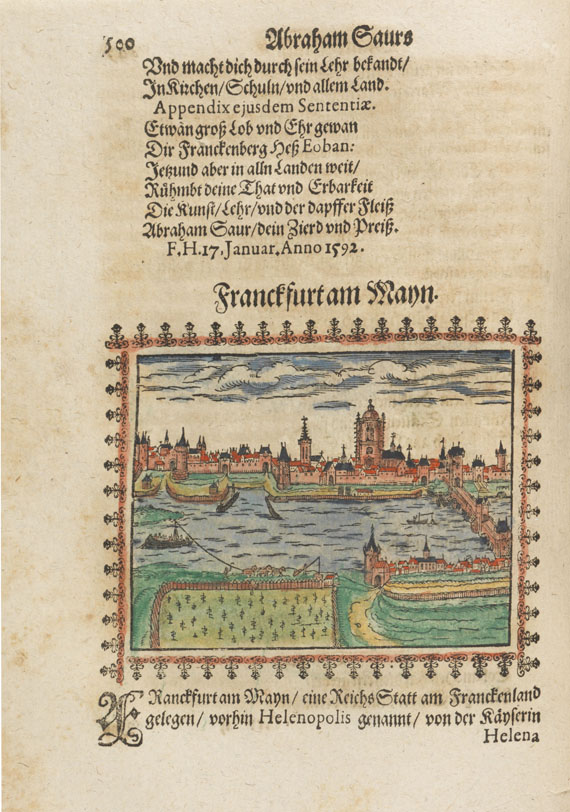 500 Abraham Saurs
Vnd macht dich durch sein Lehr bekandt/
In Kirchen/ Schuln/ vnd allem Land.
Appendix ejusdem Sententiæ.
Etwan groß Lob vnd Ehr gewan
Dir Franckenberg Heß Eoban:
Jetzund aber in alln Landen weit/
Rühmbt deine That vnd Erbarkeit
Die Kunst/ Lehr/ vnd der dapffer Fleiß
Abraham Saur/ dein Zierd vnd Preiß.
F. H. 17. Januar. Anno 1592.
Franckfurt am Mayn.
FRanckfurt am Mayn/ eine Reichs Statt am Franckenland
gelegen/ vorhin Helenopolis genannt/ von der Käyserin
Helena